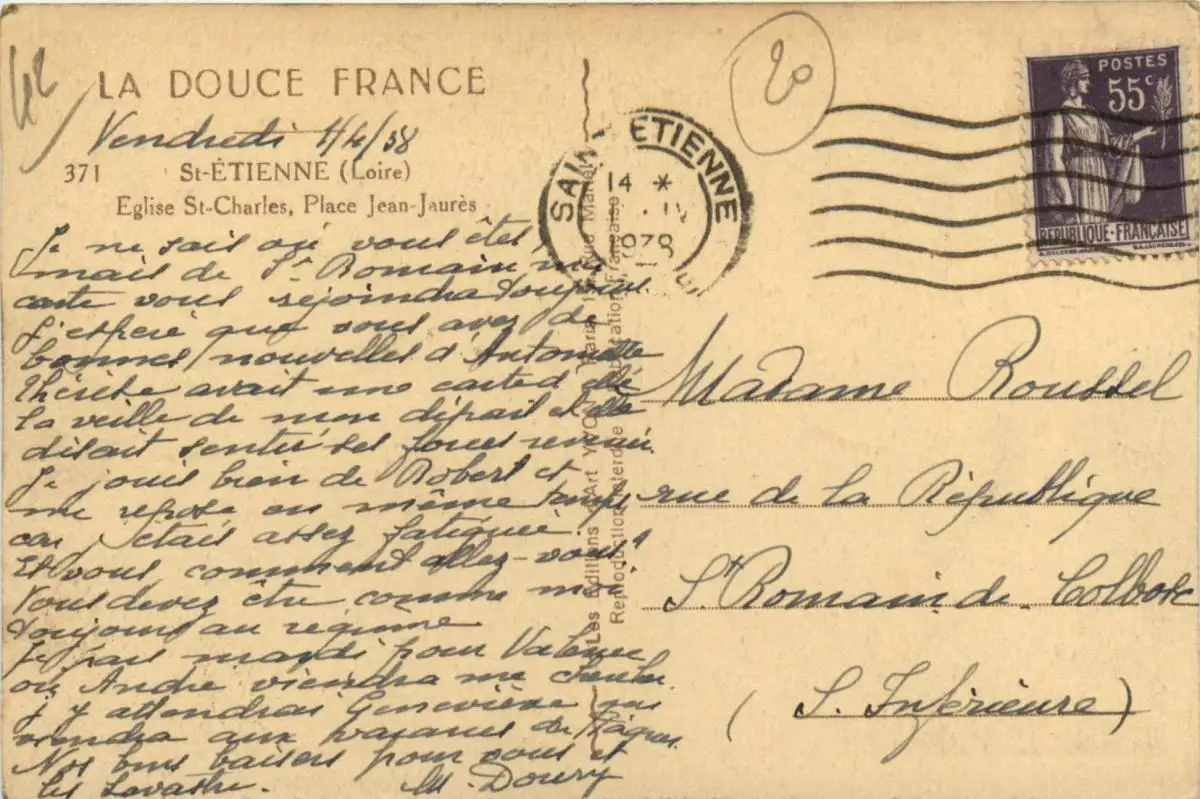 42
20
LA DOUCE FRANCE
Vendredi 1/4/38
371 St-ÉTIENNE (Loire)
Eglise St-Charles, Place Jean-Jaurès
Je ne sais où vous êtes,
mais de St Romain ma
carte vous rejoindra toujours.
J'espère que vous avez de
bonnes nouvelles d'Antoinette
Thérèse avait une carte d'elle
la veille de mon départ et elle
disait sentir ses forces revenir.
Je jouis bien de Robert et
me repose en même temps
car j'étais assez fatiguée.
Et vous, comment allez-vous?
Vous devez être comme moi
toujours au régime
Je pars mardi pour Valence
où André viendra me chercher.
J'y attendrai Geneviève qui
viendra aux vacances de Pâques.
Nos bons baisers pour vous et
les
M. Doury
SAINT ETIENNE
14 *
IV
1938
POSTES
55c
RÉPUBLIQUE-FRANÇAISE
Les Editions d'Art YVON
Reproduction Interdite
Madame Roussel
rue de la République
St Romain de Colbosc
(S. Inférieure)